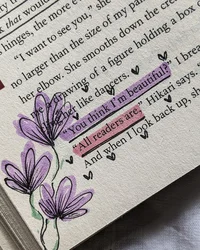 that would
hinges, the more e
"I want to see you," she
no larger than the size of my pa
her elbow. She smooths down the cre
drawing of a figure holding a box
like dancers.
"You think I'm beautiful?" I brea
"All readers are," Hikari says.
And when I look back up, sh